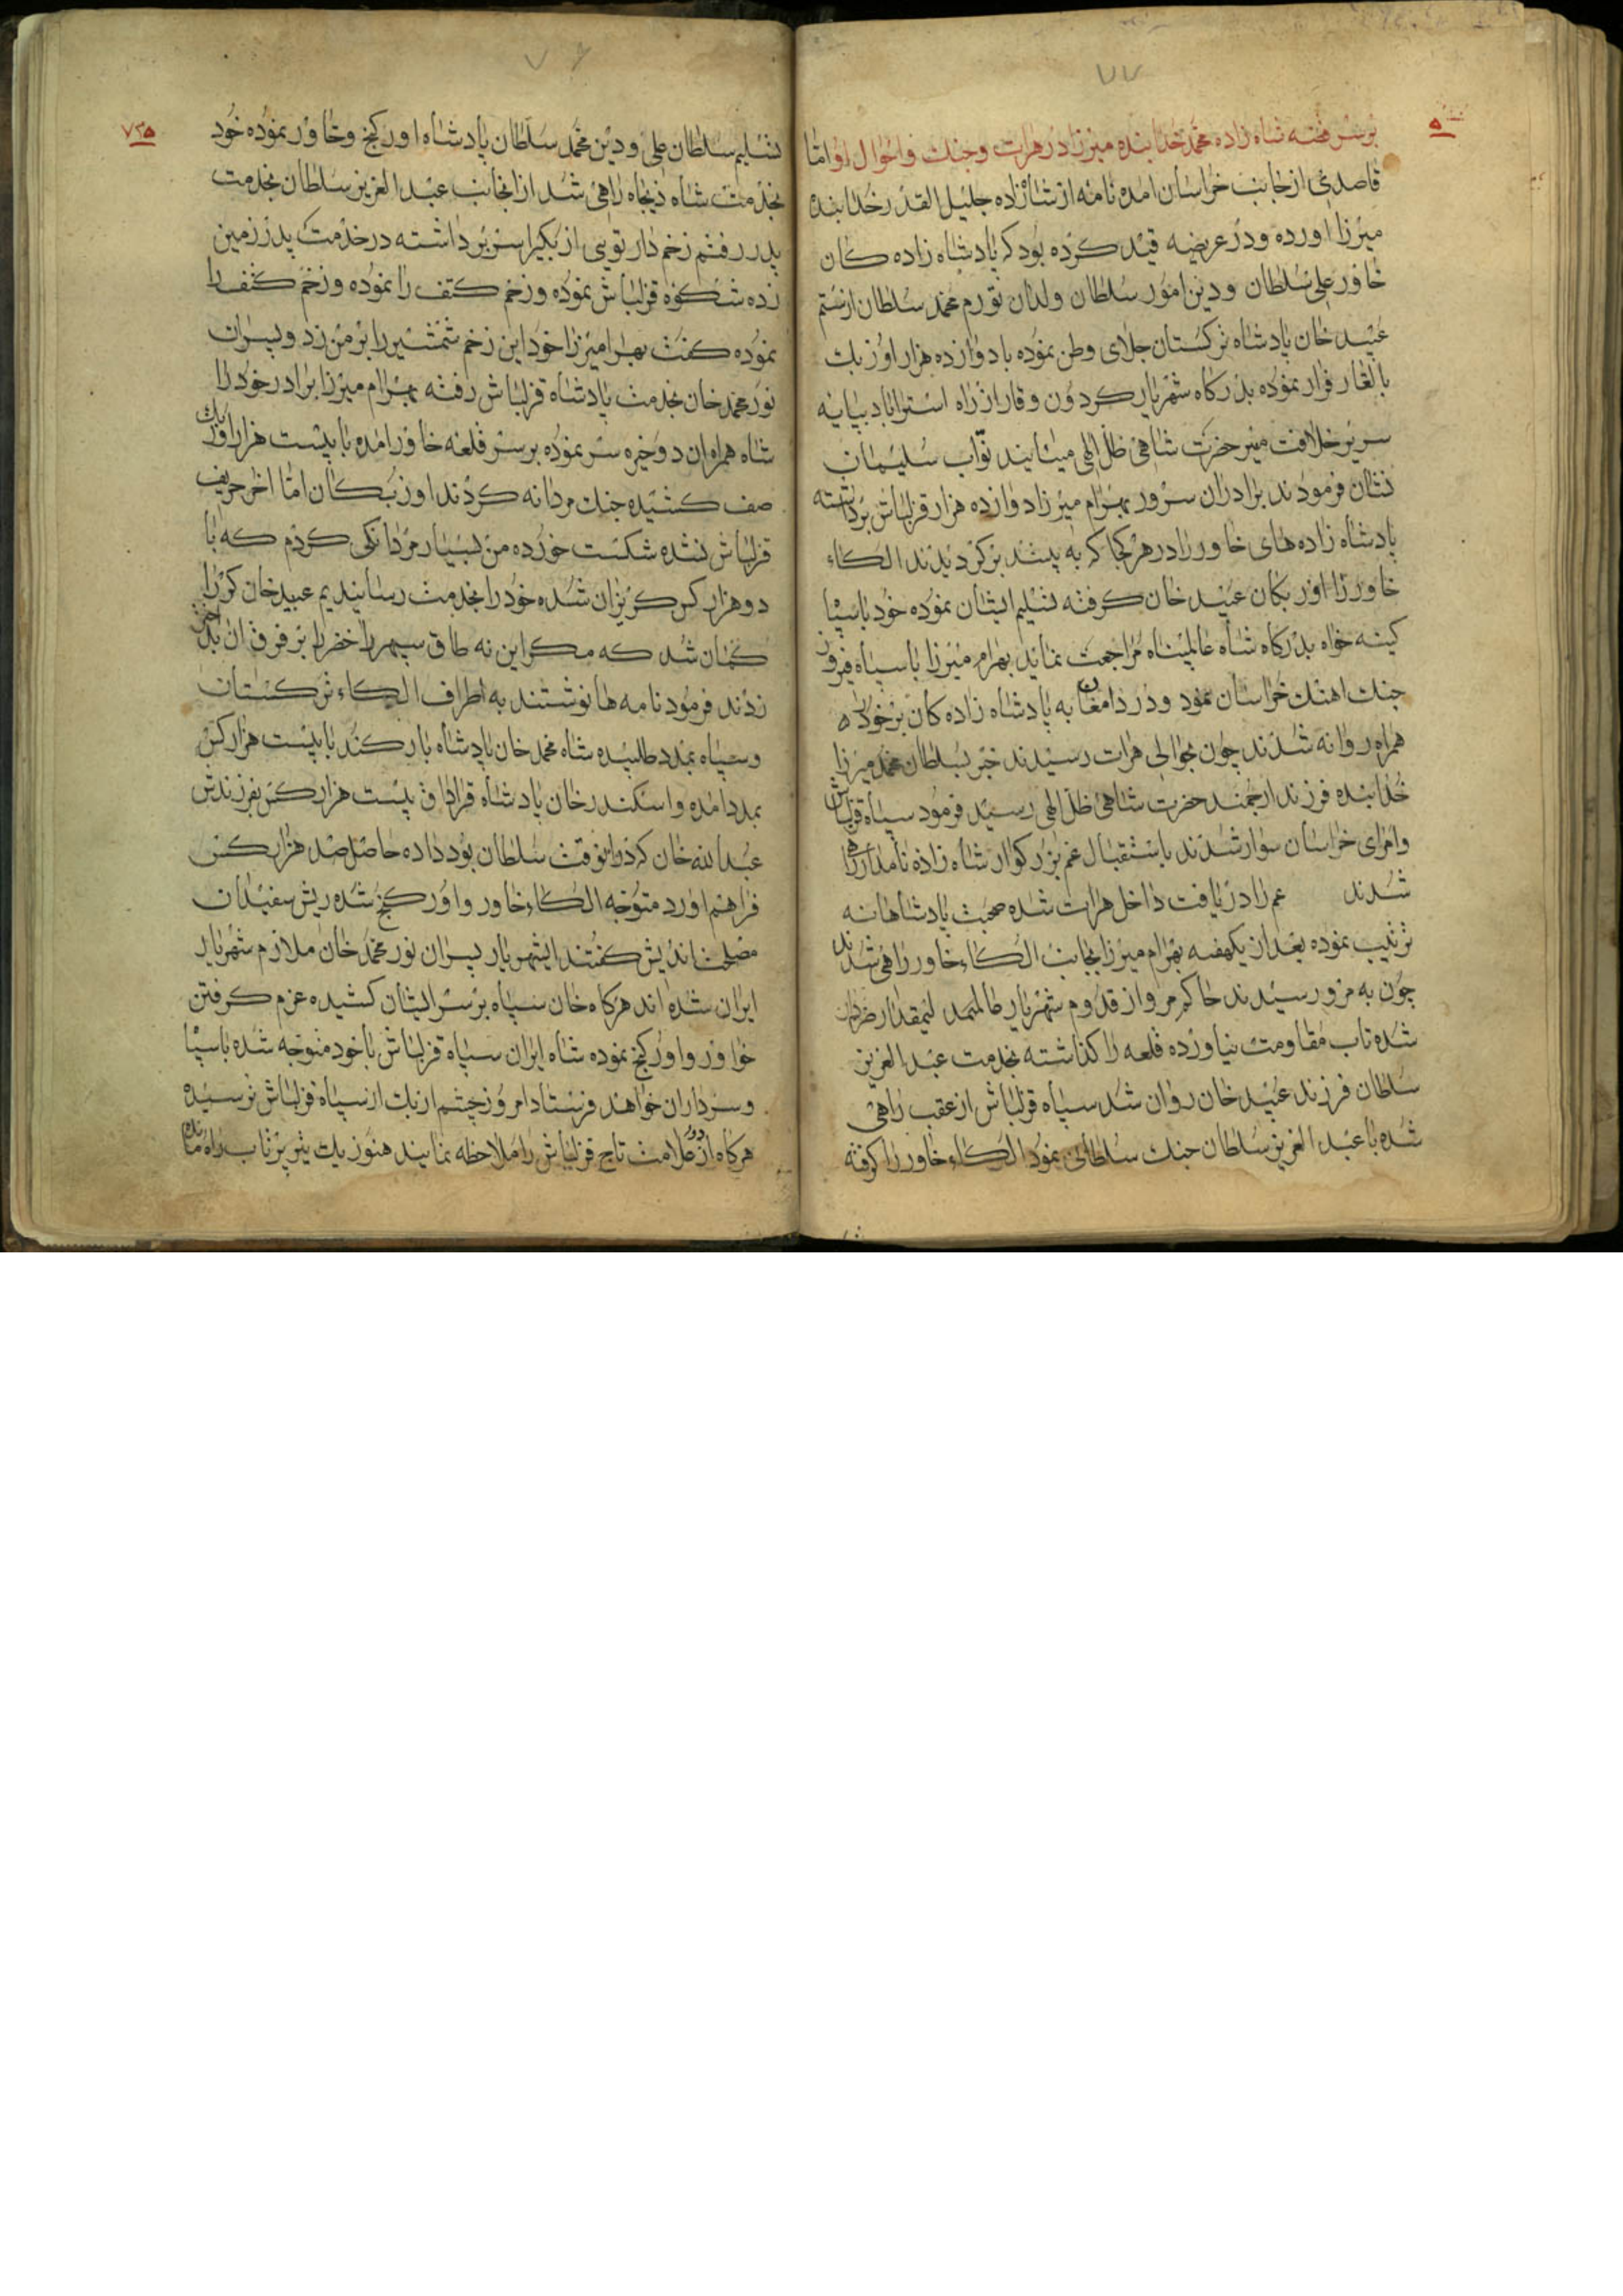 ۷۷
بر سر فتنه شاه زاده محمد خدابنده میرزا در هرات و جنك و احوال او اما
قاصدی از جانب خراسان امده نامه از شاه زاده جلیل القدر خدابنده
میرزا اورده و در عریضه قید کرده بود که پادشاه زاده کان
خاور علی سلطان و دین امور سلطان ولدان نورم محمد سلطان از ستم
عبید خان پادشاه ترکستان جلای وطن نموده با دوازده هزار اوزبك
بالغار فرار نموده بدرکاه شهریار کردون وقار از راه استراباد بپایه
سریر خلافت میر حضرت شاهی ظل الهی میایند نواب سلیمان
نشان فرمودند برادران سرور بهرام میرزا دوازده هزار قزلباش برداشته
پادشاه زاده های خاور را در هر کجا که به بیند برکردیدند الکاء
خاور را از اوزبکان عبید خان کرفته تسلیم ایشان نموده خود با سپا
کینه خواه بدرکاه شاه عالمپناه مراجعت نماید بهرام میرزا با سپاه فیروز
جنك اهنك خراسان نمود و در دامغان به پادشاه زاده کان برخورد
همراه روانه شدند چون بحوالی هرات رسیدند خبر بسلطان محمد میرزا
خدابنده فرزند ارجمند حضرت شاهی ظل الهی رسید فرمود سپاه قزلباش
و امرای خراسان سوار شدند باستقبال عم بزرکوار شاه زاده نامدار راهی
شدند عم را دریافت داخل هرات شده صحبت پادشاهانه
ترتیب نموده بعد از یکهفته بهرام میرزا بجانب الکاء خاور راهی شدند
چون به مرو رسیدند حاکم مرو از قدوم شهریار
شده تاب مقاومت نیاورده قلعه را کذاشته بخدمت عبد العزیز
سلطان فرزند عبید خان روان شد سپاه قزلباش از عقب راهی
شده با عبد العزیز سلطان جنك سلطانی نمود الکاء خاور را کرفته
۷۶
۷۳۵
تسلیم سلطان علی و دین محمد سلطان پادشاه اورکنج و خاور نموده خود
بخدمت شاه ذیجاه راهی شد از انجانب عبد العزیز سلطان بخدمت
پدر رفتم زخم دار توپی از بکیر اسر برداشته در خدمت پدر زمین
زده شکوه قزلباش نموده و زخم کتف را نموده و زخم کتف را
نموده کفت بهرام میرزا خود این زخم شمشیر را بر من زد و پسران
نور محمد خان بخدمت پادشاه قزلباش رفته بهرام میرزا برادر خود را
شاه همراه ان دو خیره سر نموده بر سر قلعه خاور امده با بیست هزار اوزبك
صف کشیده جنك مردانه کردند اوزبکان اما اخر حریف
قزلباش نشده شکست خورده من بسیار مردانکی کردم که با
دو هزار کس کریزان شده خود را بخدمت رسانیدیم عبید خان کر را
کمان شد که مکر این نه طاق سپهر اخضر را بر فرق ان بد اختر
زدند فرمود نامه ها نوشتند به اطراف الکاء ترکستان
و سپاه بمدد طلبیده شاه محمد خان پادشاه یارکند با بیست هزار کس
بمدد امده و اسکندر خان پادشاه قراداق بیست هزار کس بفرزندش
عبدالله خان که در انوقت سلطان بود داده حاصل صد هزار کس
فراهم اورد متوجه الکاء خاور و اورکنج شده ریش سفیدان
مصلحت اندیش کفتند ایشهریار پسران نور محمد خان ملازم شهریار
ایران شده اند هرکاه خان سپاه بر سر ایشان کشیده عزم کرفتن
خاور و اورکنج نموده شاه ایران سپاه قزلباش یا خود متوجه شده یا سپا
و سرداران خواهند فرستاد امروز چشم ازبك از سپاه قزلباش ترسیده
هرکاه از دور علامت تاج قزلباش را ملاحظه نمایند هنوز یك تیر پرتاب راه مانده